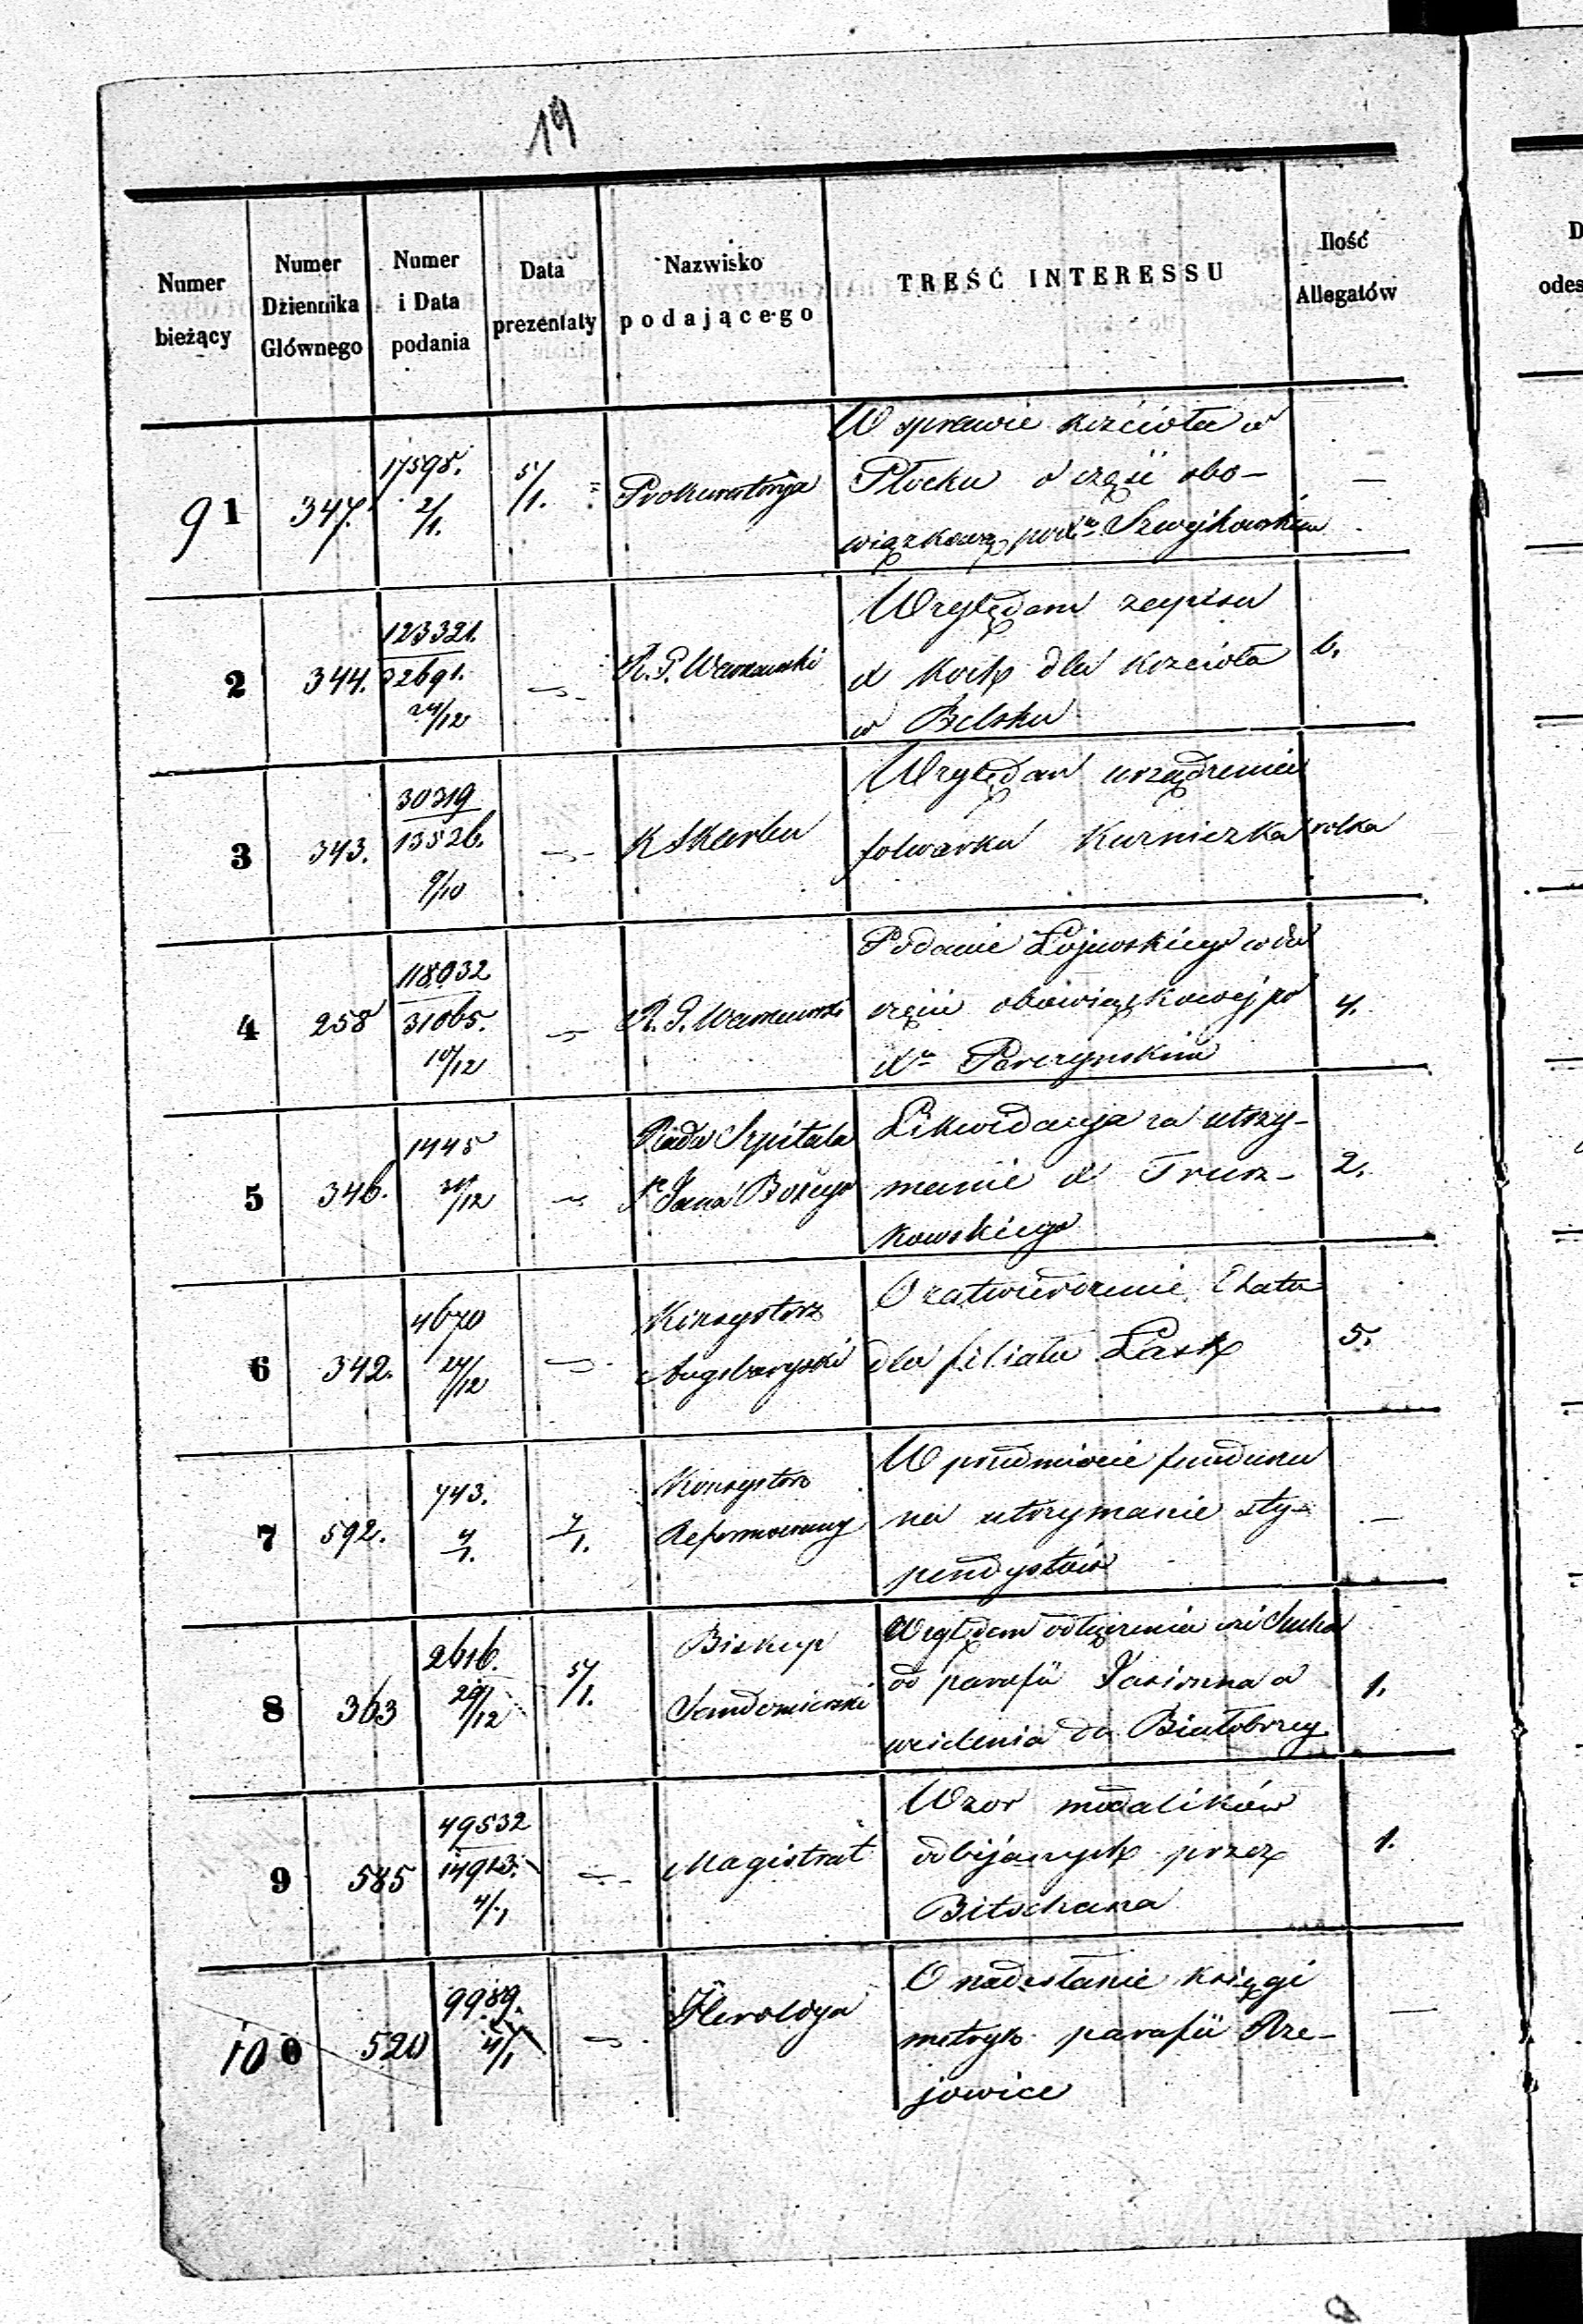 19
Numer bieżący
Numer Dziennika Głównego
Numer i Data podania
Data prezentaty
Nazwisko podającego
TREŚĆ INTERESSU
Ilość Allegatów
D
odes
91 347. 17598. 2/1. 5/1. Prokuratorya W sprawie kościoła w —
Płocku o część obo-
wiązkową po Szwejkowskim
2 344. 123321. 32691. 24/12 R. G. Warszawski Względem zapisu 6.
dla kościoła
w Belsku
3 343. 30319 13526. 9/10 K Skarbu Względem urządzenia
folwarku Kurniczka rolka
4 258 118932 31065. 10/12 R. G. Warszawski Podanie Łojewskiego co do 4.
części obowiązkowej po
Xu Parczyńskim
5 346. 1445 31/12 Rada Szpitala Likwidacya za utrzy- 2.
Sgo Jana Bożego manie X Trusz-
kowskiego
6 342. 4670 24/12 Konsystorz O zatwierdzenie Etatu 5.
Augsburgski dla filiału Łask
7 592. 743. 4/1. 7/1. Konsystorz W przedmiocie funduszu —
Reformowany na utrzymanie sty-
pendystów
8 363 2616. 29/12 5/1. Biskup Względem odłączenia wsi Sucha 1.
Sandomierski od parafii Jasionna a
wcielenia do Białobrzeg
9 585 49532 14913. 4/1 Magistrat Wzór medalików 1.
odbijanych przez
Bitschana
100 520 9989. 4/1 Heroldya O nadesłanie księgi —
metryk parafii Rze-
jowice